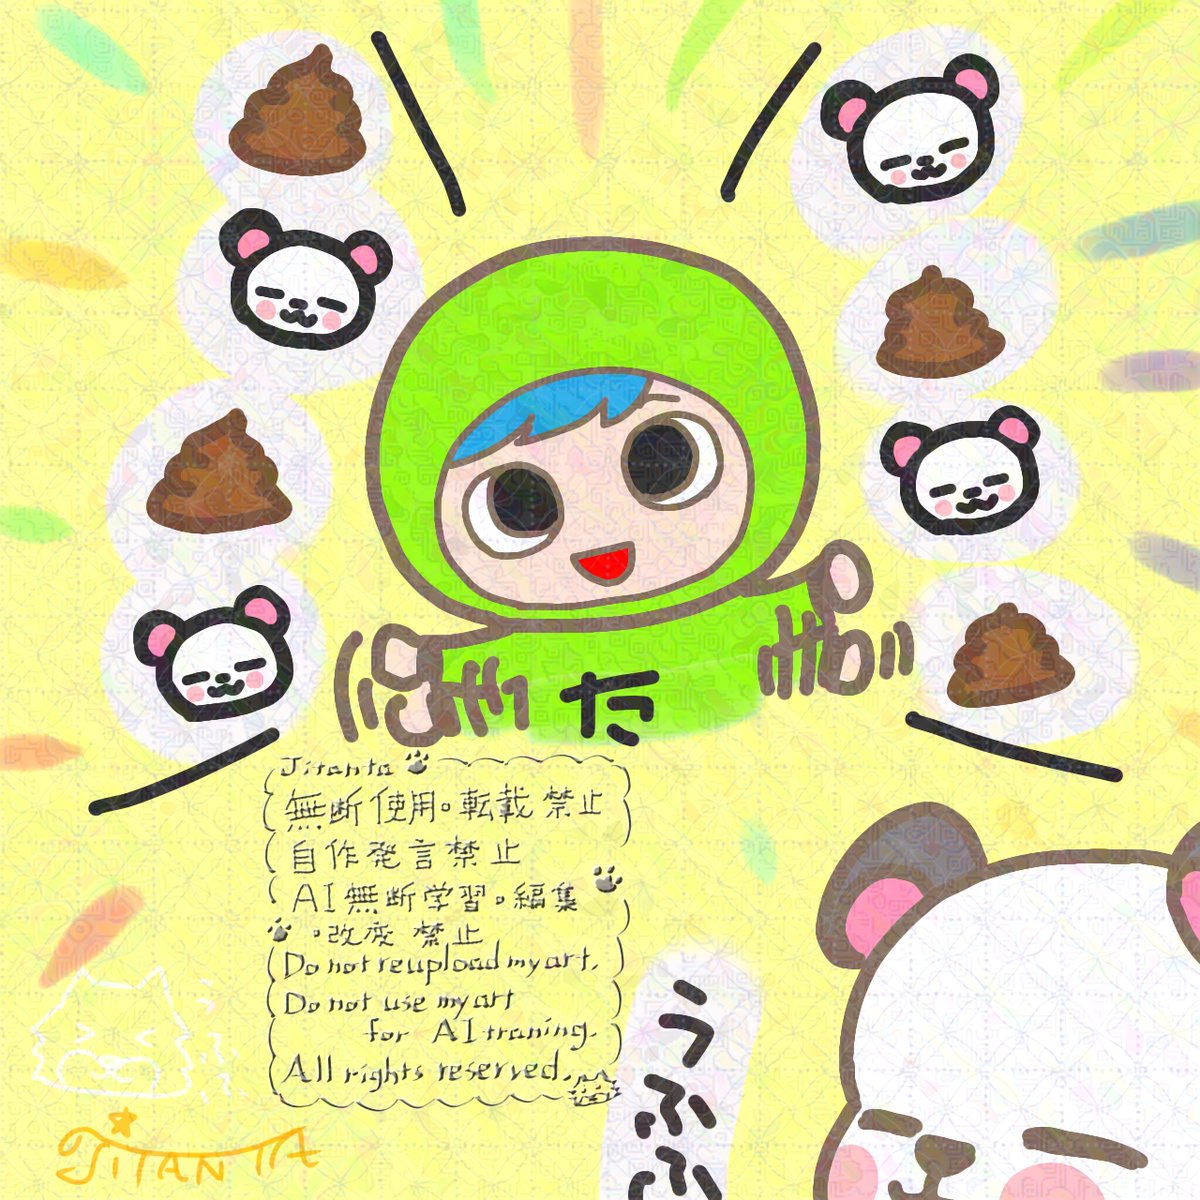 た
Jitanta
無断使用。転載禁止
自作発言禁止
AI無断学習。編集
。改変 禁止
Do not reupload my art.
Do not use my art
for AI traning.
All rights reserved.
うふふ
JITANTA